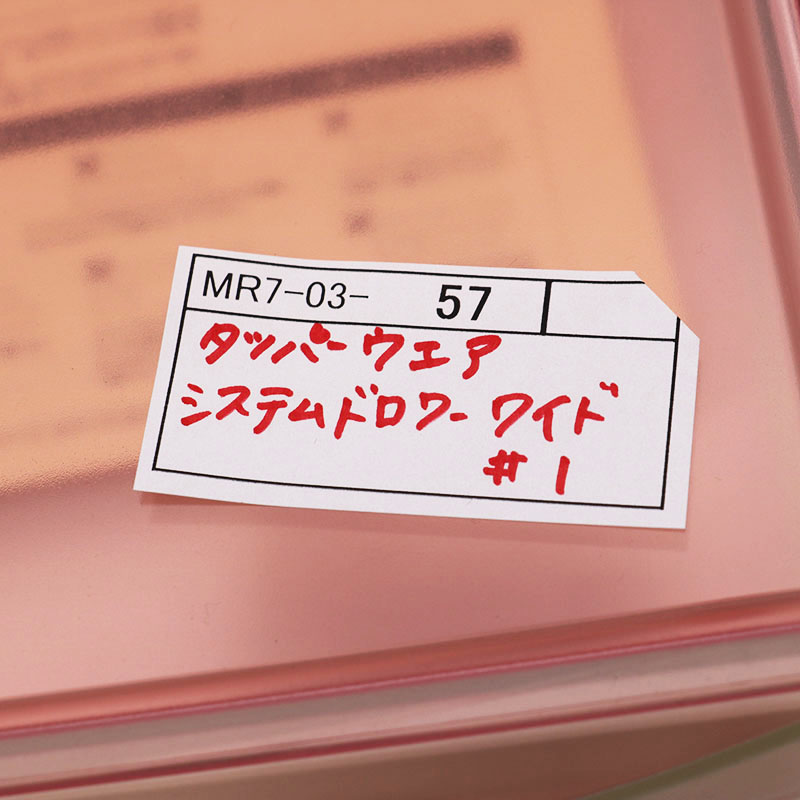 MR7-03- 57
タッパーウエア
システムドロワー ワイド
#1